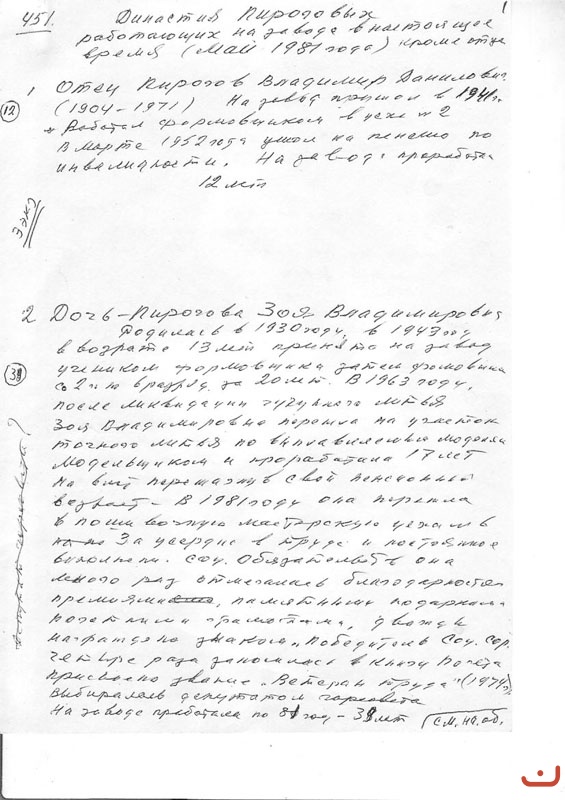 451.
1
Династия Пироговых
работающих на заводе в настоящее
время (май 1981 года) кроме отца
12
1 Отец Пирогов Владимир Данилович
(1904-1971) На завод пришол в 1941 г.
Работал формовщиком в цехе №2
В марте 1952 года ушол на пенсию по
инвалидности. На заводе проработал
12 лет
3 экз
2 Дочь-Пирогова Зоя Владимировна
Родилась в 1930 году, в 1943 год
в возрасте 13 лет принята на завод
учеником формовщика затем формовщика
со 2 разряд за 20 лет. В 1963 году,
38
после ликвидации чугунного литья
Зоя Владимировна перешла на участок
точного литья по выплавляемым моделям
модельщиком и проработала 17 лет
возраст - В 1981 году она перешла
в пошивочную мастерскую
За усердие в труде и постоянное
выполнен. соц. обязательств она
много раз отмечалась благодарностям
премиями, памятными подарками
почетными грамотами, дважды
награждена знаком „Победитель соц. сор.
четыре раза заносилась в книгу Почета
Присвоено звание „Ветеран труда" (1974 г.
выбиралась депутатом горсовета
На заводе работала по 81 год - 38 лет
см. на об.